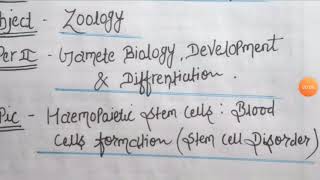 bject - Zoology
Per II - Gamete Biology, Development
& Diffrentiation.
pic - Haemopoietic Stem cells : Blood
Cells formation (Stem Cell Disorder)